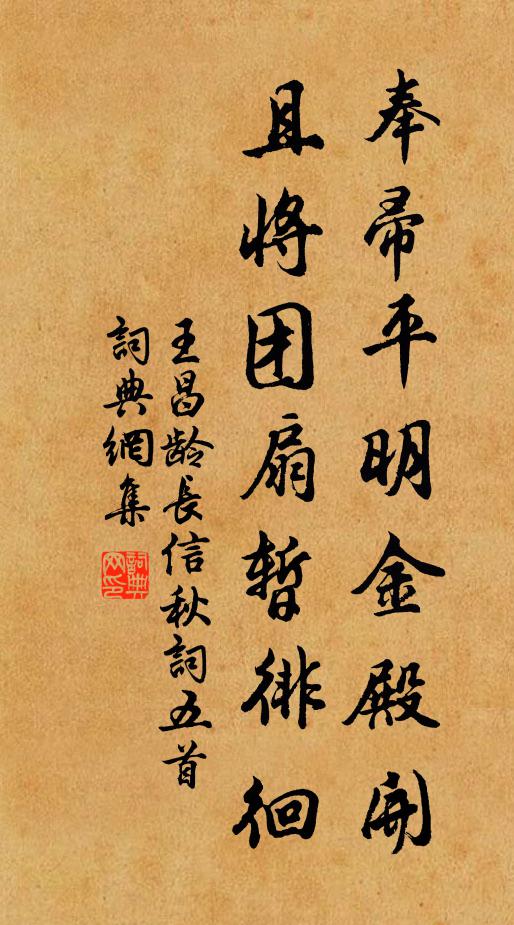 奉帚平明金殿開
且將团扇暫徘徊
王昌龄長信秋詞五首
詞典網集
詞典网印